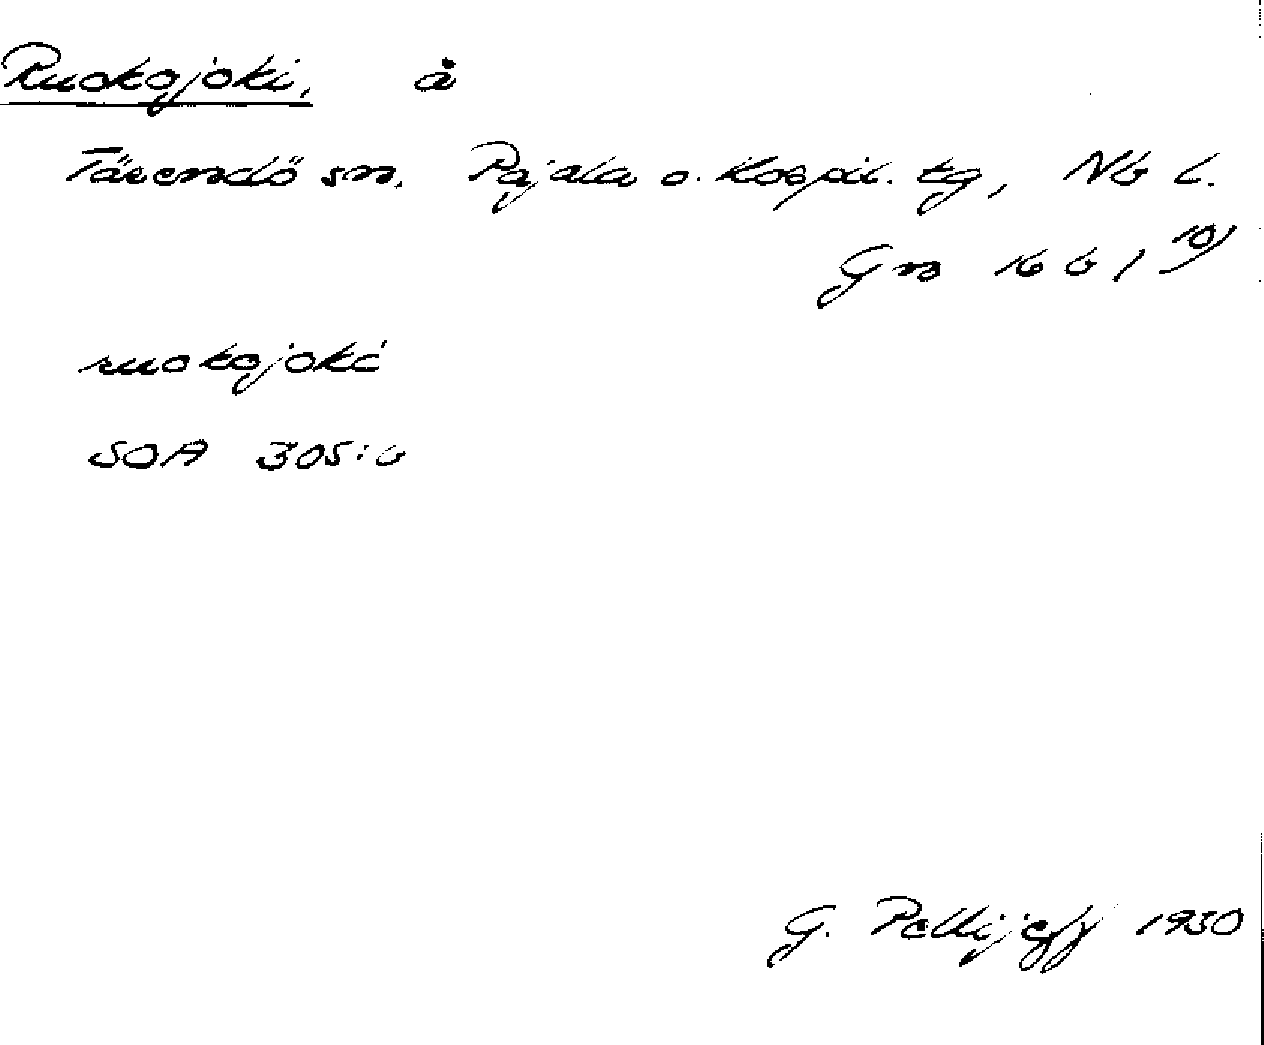 Ruokojoki, å
Tärendö sn, Pajala o. Korpil. tg, Nb l.
Gn 16 b 1 10/
ruokojoki
SOA 305:6
G. Pellijeff 1930